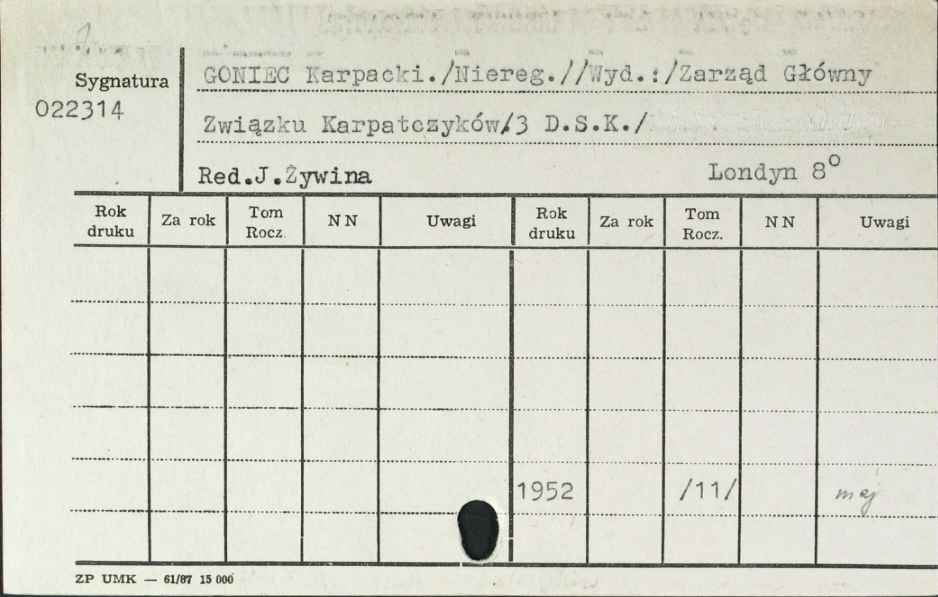 Sygnatura
022314
GONIEC Karpacki./Niereg.//Wyd.:/Zarząd Główny
Związku Karpatczyków/3 D.S.K./
Red.J.Żywina Londyn 8°
Rok druku Za rok Tom Rocz. N N Uwagi Rok druku Za rok Tom Rocz. N N Uwagi
1952 /11/ maj
ZP UMK — 61/87 15 000